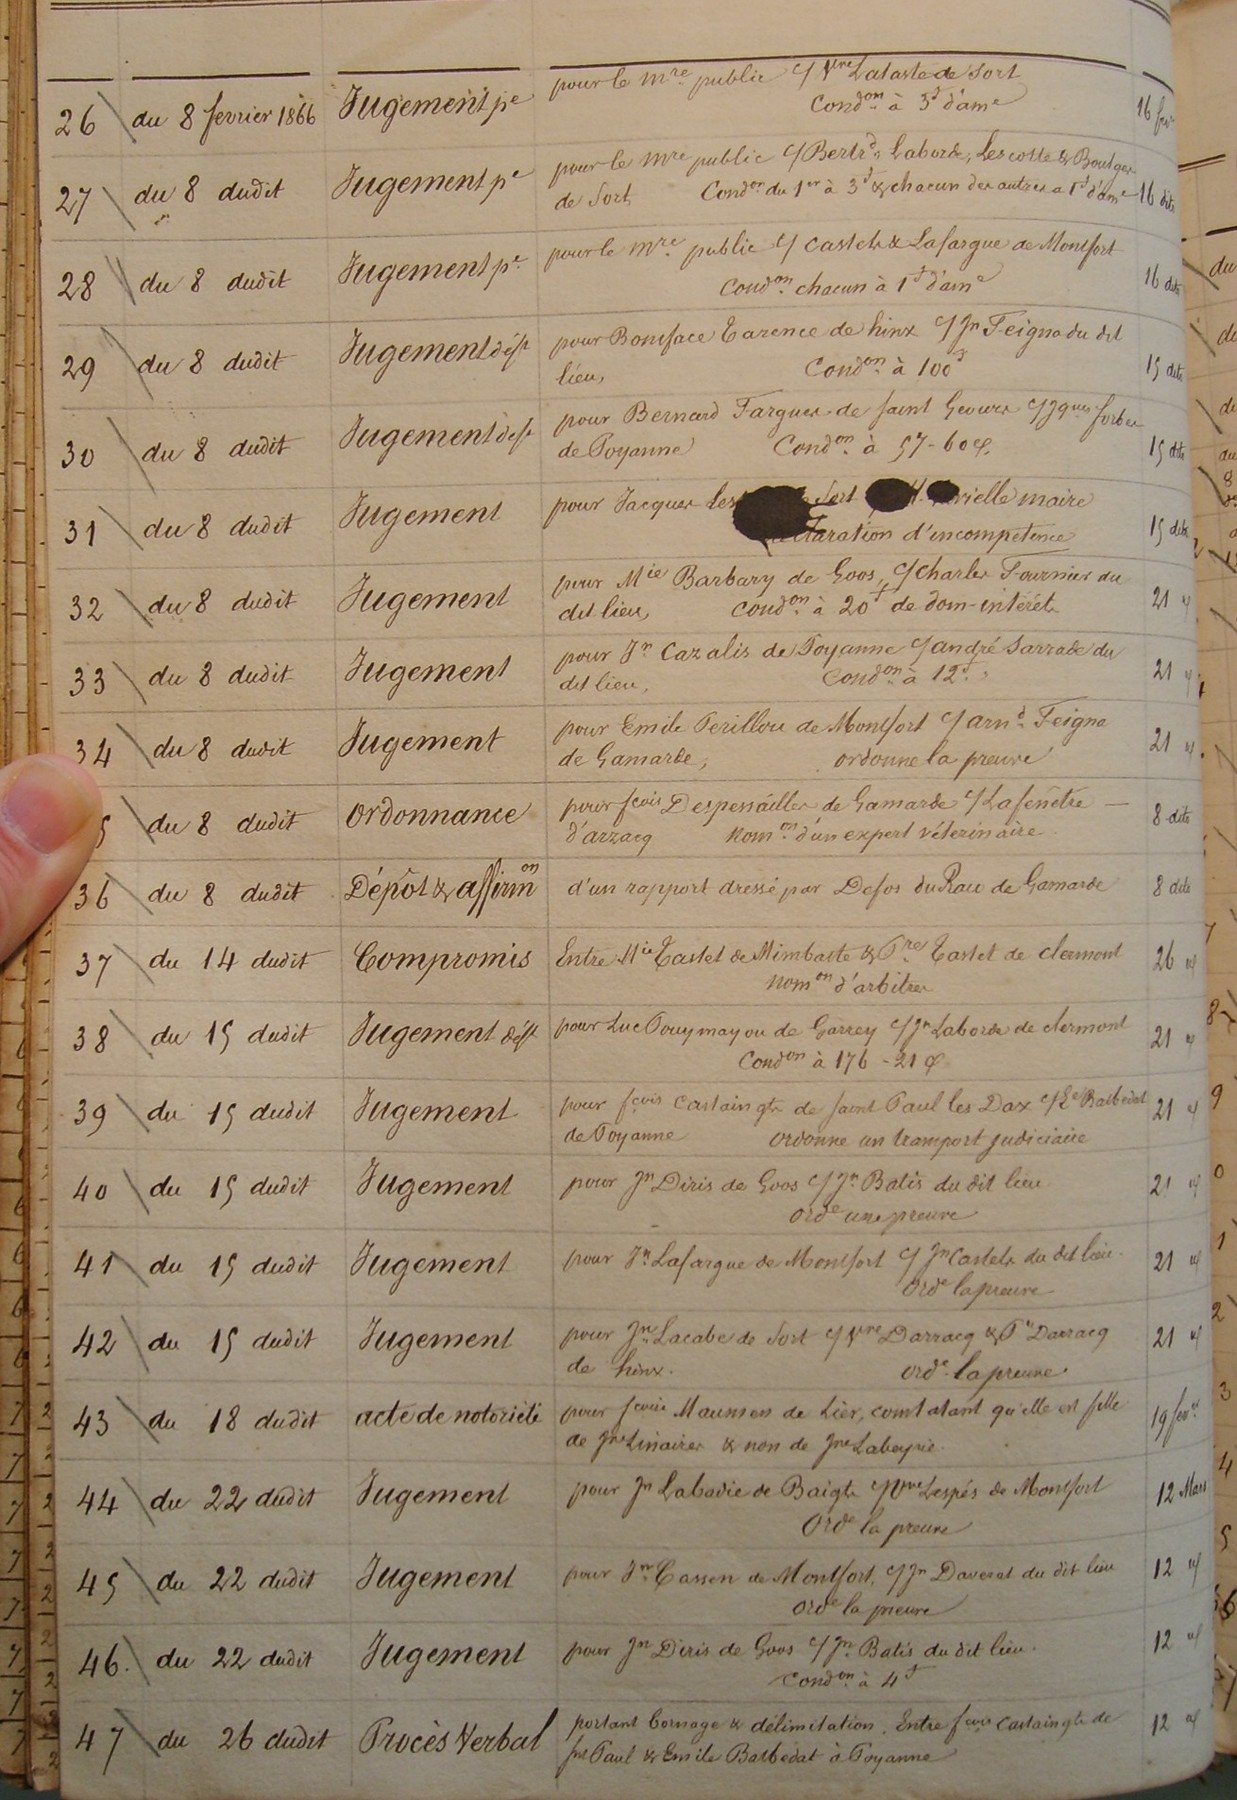 pour le mre public c/ Vve Lataste de Sort
26 du 8 fevrier 1866 Jugement pe Condon à 3f d'ame 16 fevr
pour le mre public c/ Bertrd Laborde, Lescoste & Boulger
27 du 8 dudit Jugement pe de Sort Condon du 1er à 3f & chacun des autres a 1f d'ame 16 dito
pour le mre public c/ Castets & Lafargue de Montfort
28 du 8 dudit Jugement pe Condon chacun à 1f d'ame 16 dito
pour Boniface Tarence de hinx c/ Jn Feigna du dit
29 du 8 dudit Jugement déft lieu, Condon à 100f 15 dito
pour Bernard Fargues de Saint Geours c/ Jques forbes
30 du 8 dudit Jugement deft de Poyanne Condon à 57-60 c. 15 dito
pour Jacques Les Sort vielle maire
31 du 8 dudit Jugement claration d'incompetence 15 dito
pour Mie Barbary de Goos, c/ Charles Fournier du
32 du 8 dudit Jugement dit lieu, Condon à 20f de dom-intérêts 21 d
pour Jn Cazalis de Poyanne c/ andré Sarrade du
33 du 8 dudit Jugement dit lieu, Condon à 12f 21 d
pour Emile Perillou de Montfort c/ arnd Feigna
34 du 8 dudit Jugement de Gamarde, ordonne la preuve 21 d
pour fçois Despesailles de Gamarde c/ Lafenêtre —
5 du 8 dudit Ordonnance d'arzacq Nomon d'un expert véterinaire. 8 dito
36 du 8 dudit Dépôt & affirmon d'un rapport dressé par Defos du Rau de Gamarde 8 dito
37 du 14 dudit Compromis Entre Mie Tastet de Mimbaste & Pre Tastet de clermont 26 d
Nomon d'arbitres
38 du 15 dudit Jugement déft pour Luc Pouymayou de Garrey c/ Jn Laborde de clermont 21 d
Condon à 176-21 c
39 du 15 dudit Jugement pour fçois Castaingts de Saint Paul les Dax c/ Le Barbedat 21 d
de Poyanne ordonne un transport judiciaire
40 du 15 dudit Jugement pour Jn Diris de Goos c/ Jn Batis du dit lieu 21 d
orde une preuve
41 du 15 dudit Jugement pour Jn Lafargue de Montfort c/ Jn Castets du dit lieu. 21 d
orde la preuve
42 du 15 dudit Jugement pour Jne Lacabe de Sort c/ Vve Darracq & Pre Darracq 21 d
de hinx. orde la preuve
43 du 18 dudit acte de notoriété pour fçoise Maumen de Lier, constatant qu'elle est fille 19 fevr
de Jne Linaires & non de Jne Labeyrie.
44 du 22 dudit Jugement pour Jn Labadie de Baigts c/ Vve Lespés de Montfort 12 Mars
Orde la preuve
45 du 22 dudit Jugement pour Jn Cassen de Montfort, c/ Jn Daverat du dit lieu 12 d
orde la preuve
46. du 22 dudit Jugement pour Jn Diris de Goos c/ Jn Batis du dit lieu. 12 d
Condon à 4f
47 du 26 dudit Procès Verbal portant bornage & délimitation. Entre fçois Castaingts de 12 d
St Paul & Emile Barbedat à Poyanne